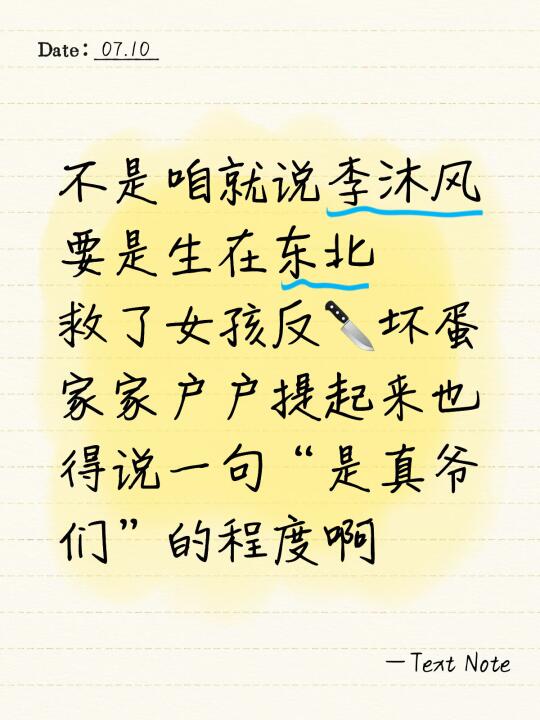 Date: 07.10
不是咱就说李沐风
要是生在东北
救了女孩反🔪坏蛋
家家户户提起来也
得说一句“是真爷
们”的程度啊
—Text Note